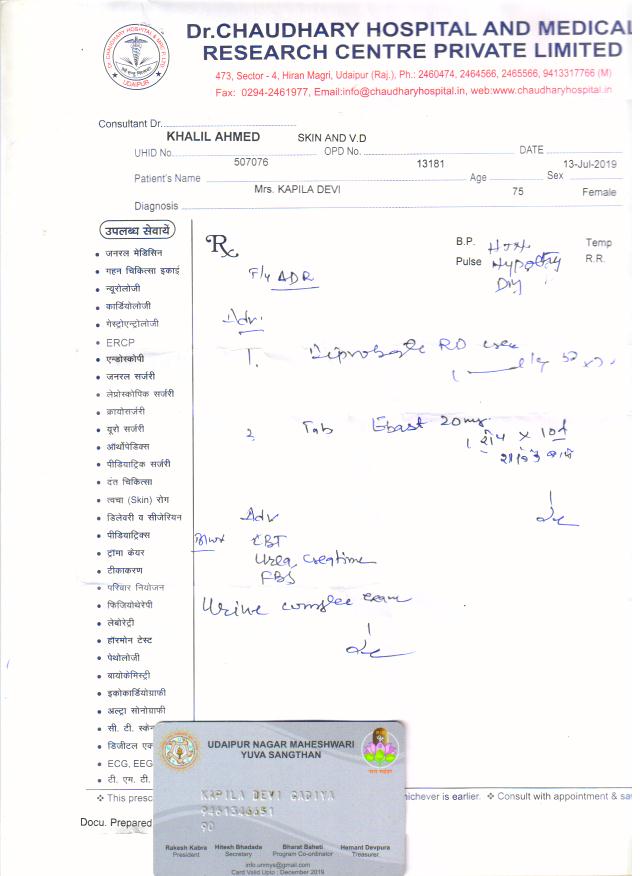 Dr. CHAUDHARY HOSPITAL & MRC P. LTD.
UDAIPUR
Dr.CHAUDHARY HOSPITAL AND MEDICAL
RESEARCH CENTRE PRIVATE LIMITED
473, Sector - 4, Hiran Magri, Udaipur (Raj.), Ph.: 2460474, 2464566, 2465566, 9413317766 (M)
Fax: 0294-2461977, Email:info@chaudharyhospital.in, web:www.chaudharyhospital.in
Consultant Dr.
KHALIL AHMED SKIN AND V.D
UHID No. 507076 OPD No. 13181 DATE 13-Jul-2019
Patient's Name Mrs. KAPILA DEVI Age 75 Sex Female
Diagnosis
उपलब्ध सेवायें
जनरल मेडिसिन
गहन चिकित्सा इकाई
न्यूरोलोजी
कार्डियोलोजी
गेस्ट्रोएन्ट्रोलोजी
ERCP
एन्डोस्कोपी
जनरल सर्जरी
लेप्रोस्कोपिक सर्जरी
क्रायोसर्जरी
यूरो सर्जरी
ऑर्थोपेडिक्स
पीडियाट्रिक सर्जरी
दंत चिकित्सा
त्वचा (Skin) रोग
डिलेवरी व सीजेरियन
पीडियाट्रिक्स
ट्रॉमा केयर
टीकाकरण
परिवार नियोजन
फिजियोथेरेपी
लेबोरेट्री
हॉरमोन टेस्ट
पेथोलोजी
बायोकेमिस्ट्री
इकोकार्डियोग्राफी
अल्ट्रा सोनोग्राफी
सी. टी. स्केन
डिजीटल एक्
ECG, EEG
टी. एम. टी.
Rx
B.P. Temp
Pulse R.R.
F/u ADR
Adv.
1.
2. Tab Ebast 20mg
Adv
Urea, Creatinine
FBS
Urine
This presc
ichever is earlier. Consult with appointment & sa
Docu. Prepared
UDAIPUR NAGAR MAHESHWARI
YUVA SANGTHAN
KAPILA DEVI GADIYA
9461346651
90
Rakesh Kabra Hitesh Bhadada Bharat Baheti Hemant Devpura
President Secretary Program Co-ordinator Treasurer
info.unmys@gmail.com
Card Valid Upto : December 2019